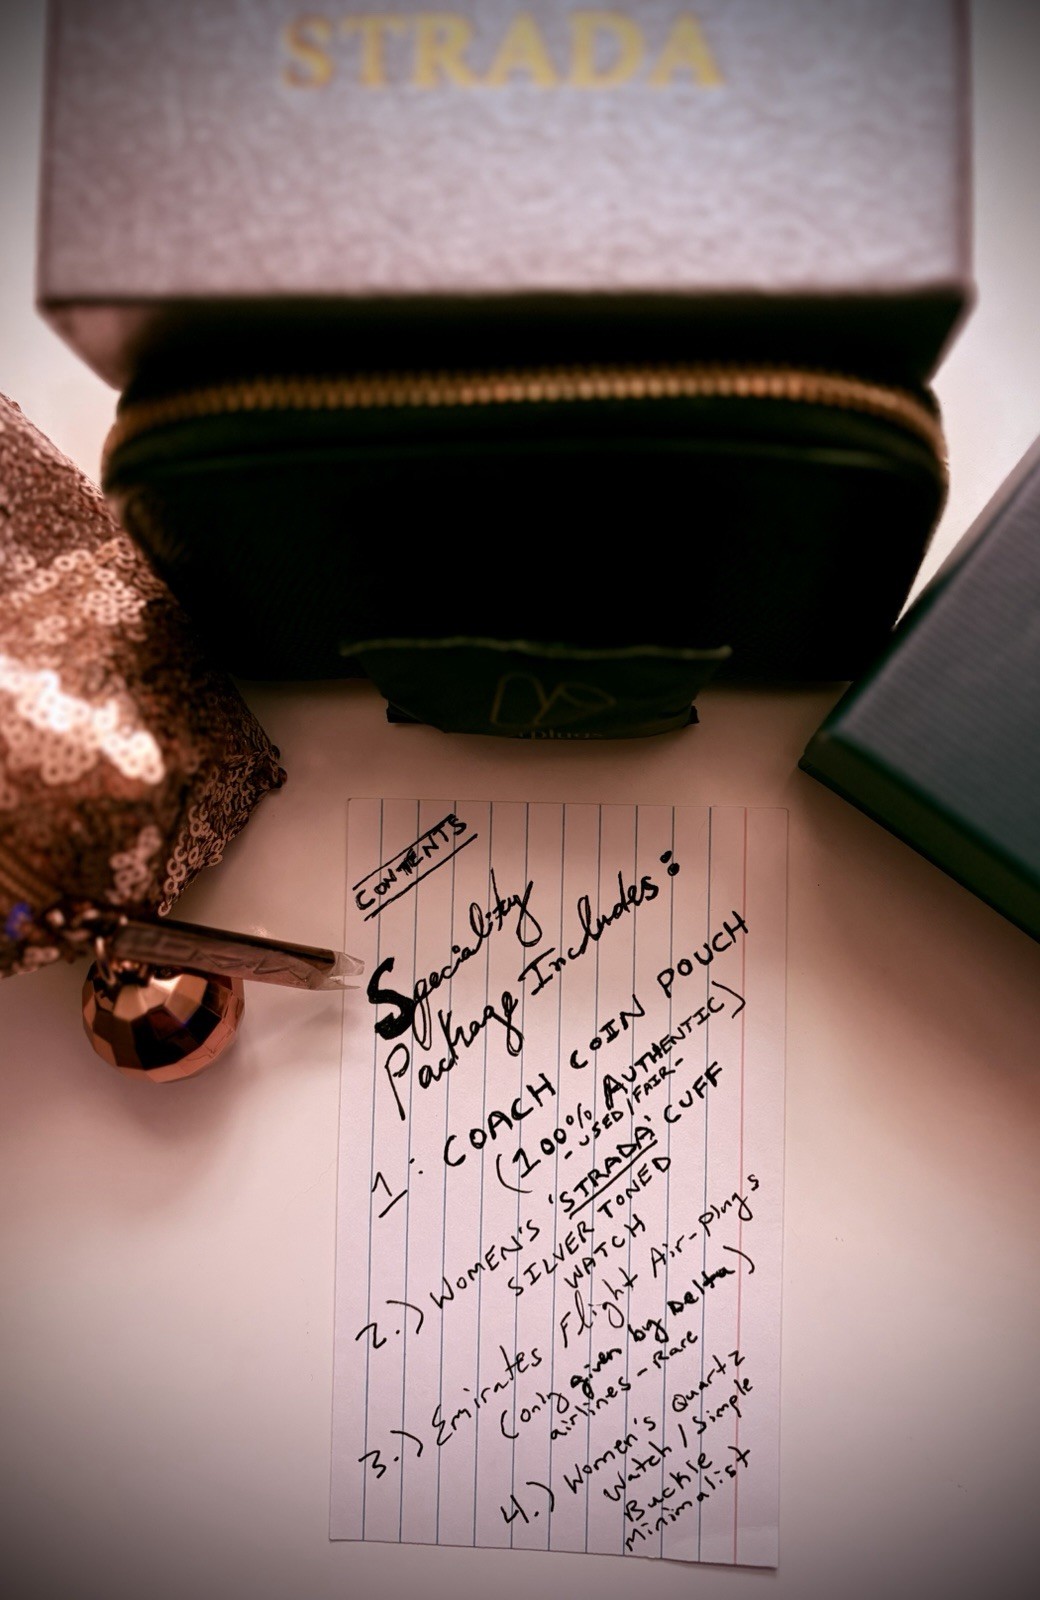 STRADA
CONTENTS
Speciality
Package Includes:
1: COACH COIN POUCH
(100% AUTHENTIC)
- USED/FAIR-
2.) WOMEN'S 'STRADA' CUFF
SILVER TONED
WATCH
3.) Emirates Flight Air-plugs
(only given by Delta)
airlines - Rare
4.) Women's Quartz
Watch / Simple
Buckle
minimalist